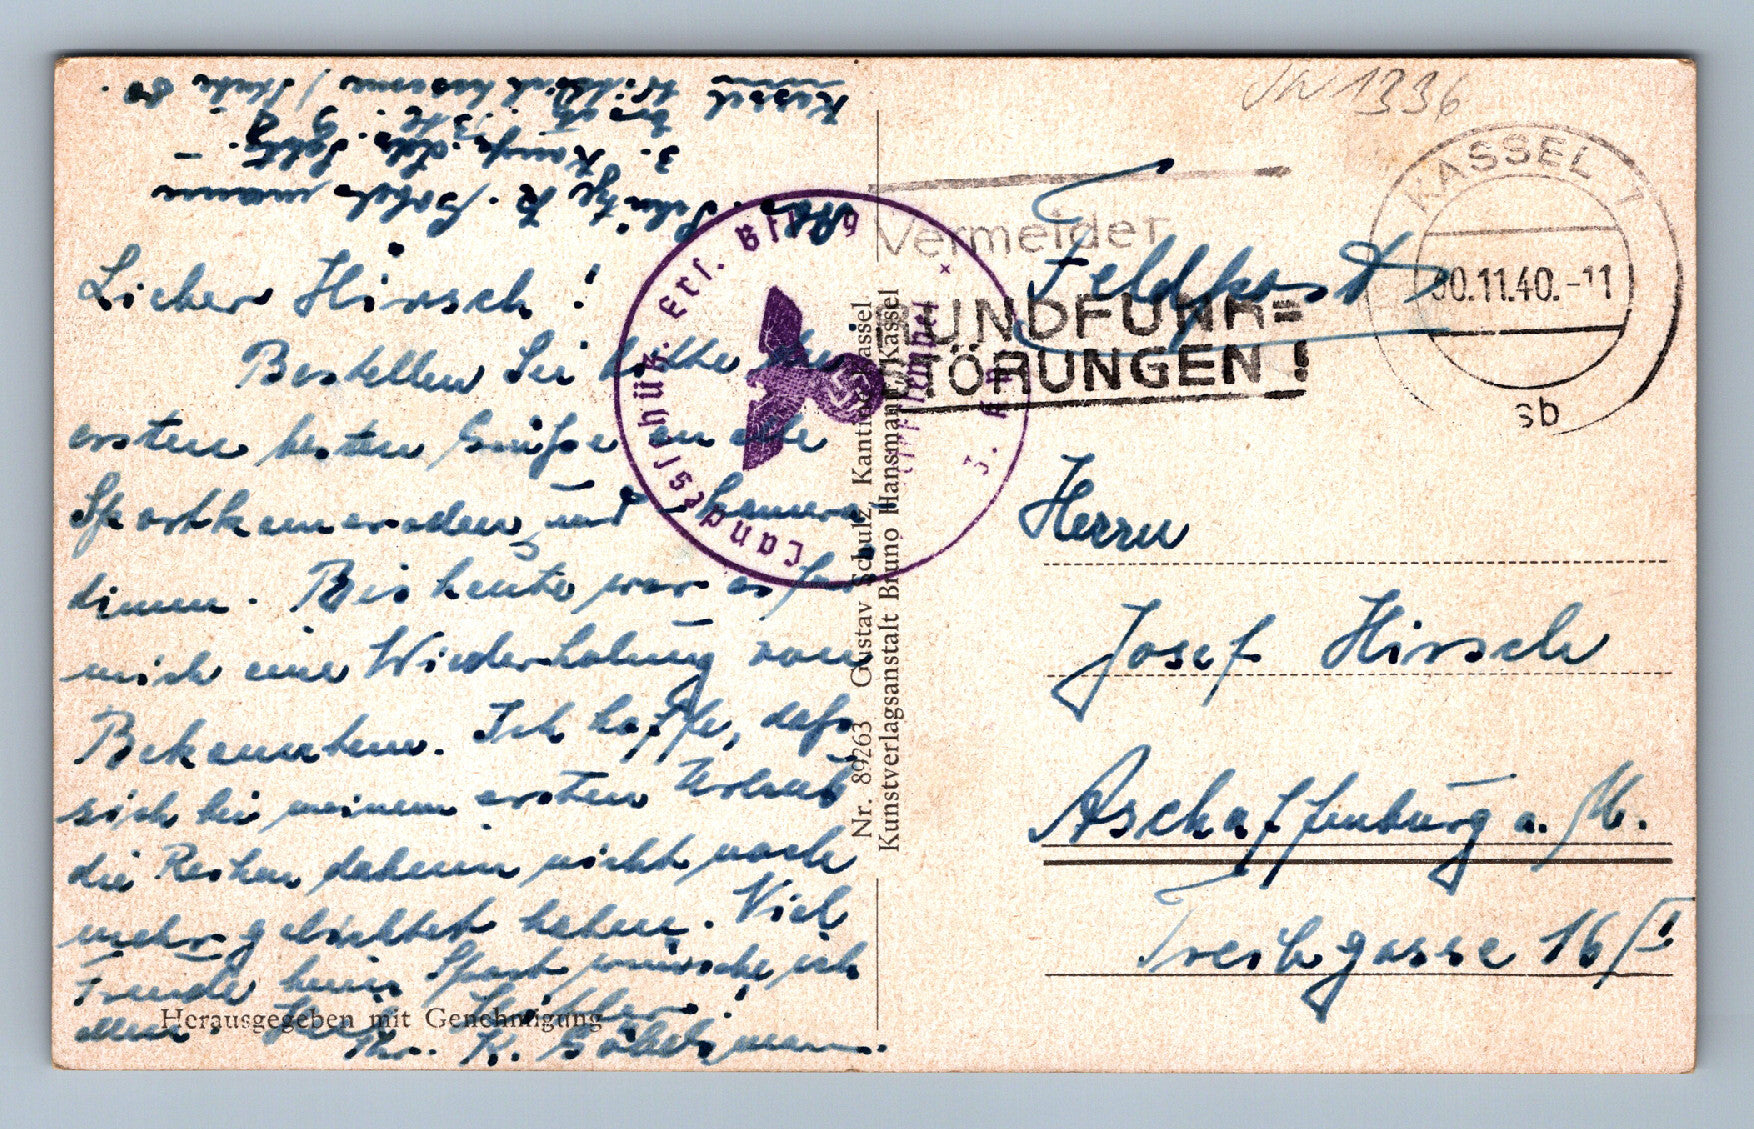 Kassel
Wittichkaserne / Stube 80.
3. Komp. Lds. Schtz.
Abs. Schütze K.
Lieber Hirsch!
Bestellen Sie bitte die
ersten besten Grüße an alle
Sportkameraden und Kamera-
dinnen. Bis heute war es für
mich eine Wiederholung von
Bekanntem. Ich hoffe, daß
sich bei meinem ersten Urlaub
die Reihen daheim nicht noch
mehr gelichtet haben. Viel
Freude beim Sport wünsche ich
allen. Heil Hitler!
Ihr K.
Herausgegeben mit Genehmigung
Nr. 89263 Gustav Schulz, Kantine, Kassel
Kunstverlagsanstalt Bruno Hansmann, Kassel
Landesschütz. Ers. Btl. 9
1336
Feldpost
Vermeidet
RUNDFUNK=
STÖRUNGEN!
KASSEL 1
30.11.40.-11
sb
Herrn
Josef Hirsch
Aschaffenburg a. M.
Treibgasse 16/I